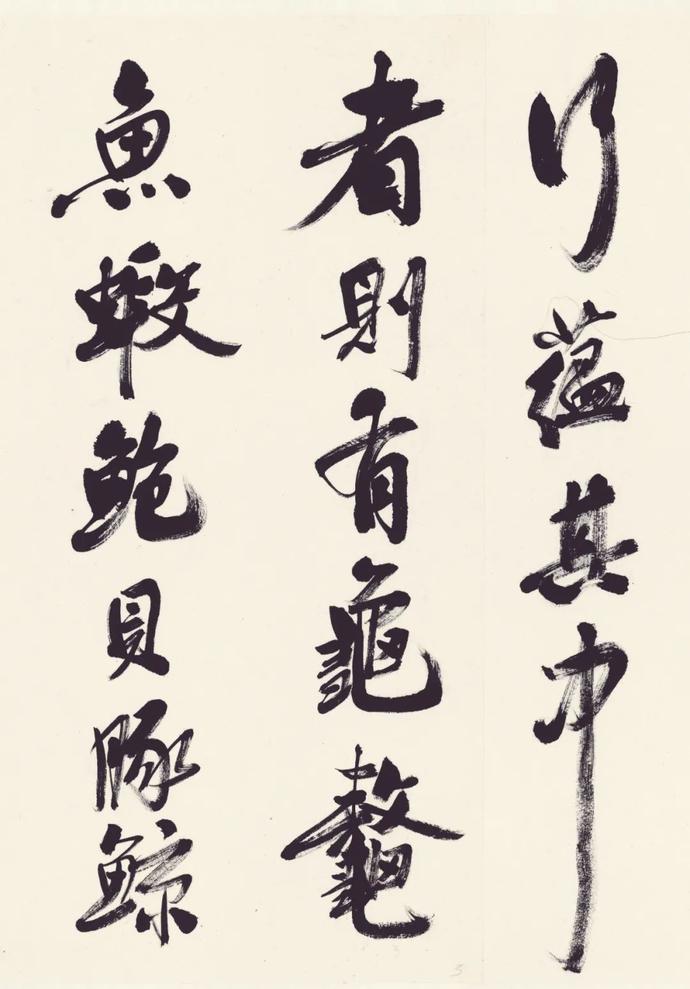 所蘊其中
者則有龜鼇
魚蝦鮑貝豚鯨